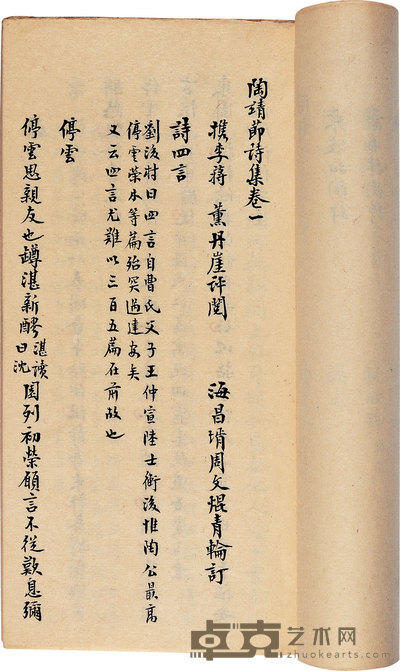 陶靖節詩集卷一
檇李蔣 薰丹崖評閱 海昌壻周文焜青輪訂
詩四言
劉後村曰四言自曹氏父子王仲宣陸士衡後惟陶公最高
停雲榮木等篇殆突過建安矣
又云四言尤難以三百五篇在前故也
停雲
停雲思親友也罇湛新醪湛讀曰沈園列初榮願言不從歎息彌
卓克艺术网
www.zhuokearts.com